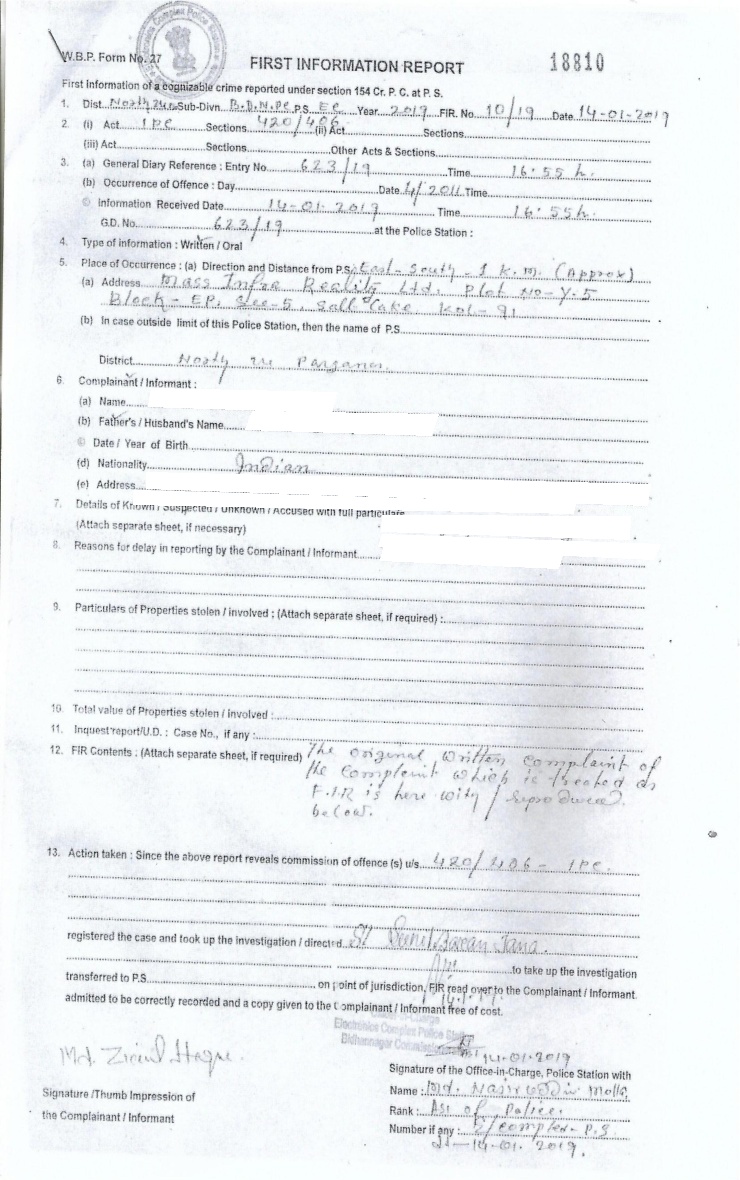 W.B.P. Form No. 27
FIRST INFORMATION REPORT
18810
First Information of a cognizable crime reported under section 154 Cr. P. C. at P. S.
1. Dist. North 24 Sub-Divn. B.D.N.PC P.S. EC Year 2019 FIR. No. 10/19 Date 14-01-2019
2. (i) Act IPC Sections 420/406 (ii) Act Sections
(iii) Act Sections Other Acts & Sections
3. (a) General Diary Reference : Entry No 623/19 Time 16:55 h.
(b) Occurrence of Offence : Day Date 4/2011 Time
Information Received Date 14-01-2019 Time 16:55h.
G.D. No. 623/19 at the Police Station :
4. Type of information : Written / Oral
5. Place of Occurrence : (a) Direction and Distance from P.S. East-South-1 K.m. (Approx)
(a) Address Mass Infra Reality Ltd. Plot No-Y-5
Block-EP, Sec-5, Salt Lake KOL-91
(b) In case outside limit of this Police Station, then the name of P.S.
District North Parganas
6. Complainant / Informant :
(a) Name
(b) Father's / Husband's Name
Date / Year of Birth
(d) Nationality Indian
(e) Address
7. Details of Known / Suspected / Unknown / Accused with full particulars
(Attach separate sheet, if necessary)
8. Reasons for delay in reporting by the Complainant / Informant
9. Particulars of Properties stolen / involved ; (Attach separate sheet, if required) :
10. Total value of Properties stolen / involved :
11. Inquest report/U.D. : Case No., if any :
12. FIR Contents : (Attach separate sheet, if required) The original written complaint of
the complaint which is treated as
F.I.R is here with / reproduced
below.
13. Action taken : Since the above report reveals commission of offence (s) u/s 420/406 - IPC.
registered the case and took up the investigation / directed SI Jana
to take up the investigation
transferred to P.S. on point of jurisdiction, FIR read over to the Complainant / Informant
admitted to be correctly recorded and a copy given to the Complainant / Informant free of cost.
Electronics Complex Police
Bidhannagar
Md. Ziaul Haque.
14-01-2019
Signature of the Office-in-Charge, Police Station with
Signature /Thumb Impression of
the Complainant / Informant
Name : Md. Nasiruddin Molla
Rank : ASI of Police
Number if any : E/Complex- P.S
14-01-2019.